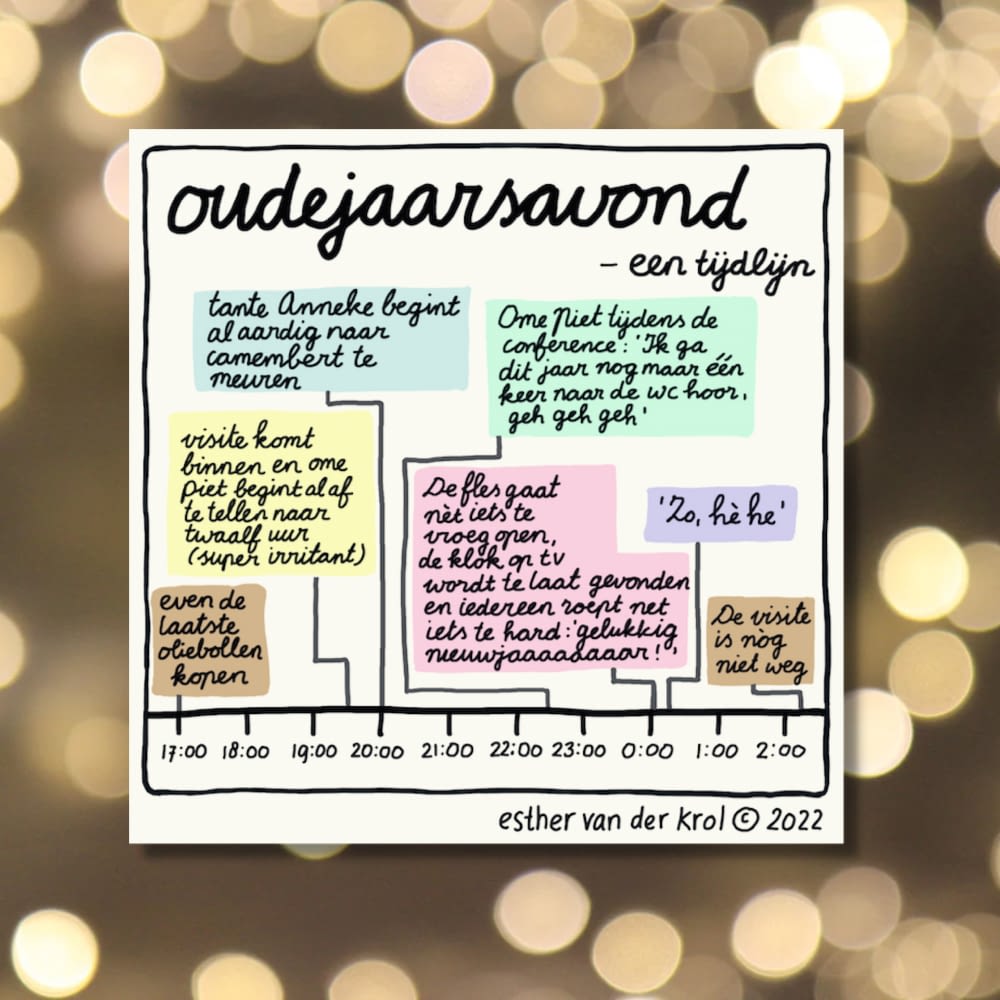 oudejaarsavond
- een tijdlijn
tante Anneke begint
al aardig naar
camembert te
meuren
Ome Piet tijdens de
conférence: 'Ik ga
dit jaar nog maar één
keer naar de wc hoor,
geh geh geh'
visite komt
binnen en ome
Piet begint al af
te tellen naar
twaalf uur
(super irritant)
De fles gaat
nèt iets te
vroeg open,
de klok op tv
wordt te laat gevonden
en iedereen roept net
iets te hard: 'gelukkig
nieuwjaaaaaaaar!'
'Zo, hè he'
even de
laatste
oliebollen
kopen
De visite
is nòg
niet weg
17:00 18:00 19:00 20:00 21:00 22:00 23:00 0:00 1:00 2:00
esther van der Krol © 2022